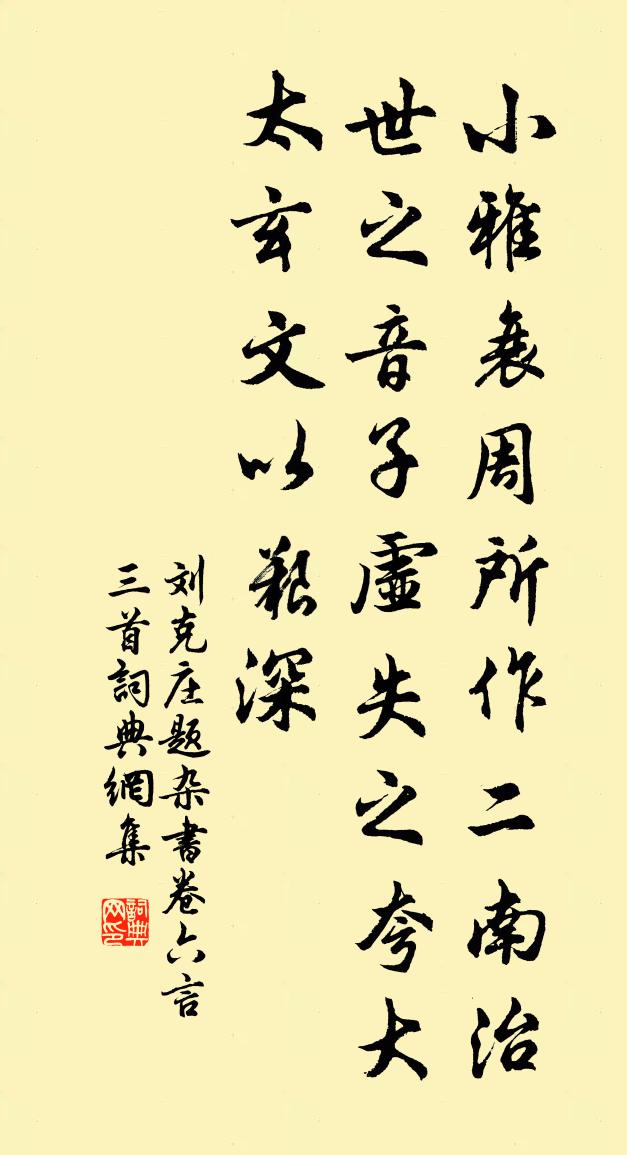 小雅衰周所作二南治
世之音子虛失之夸大
太玄文以艱深
刘克庄題杂書卷六言
三首詞典網集
詞典
网印